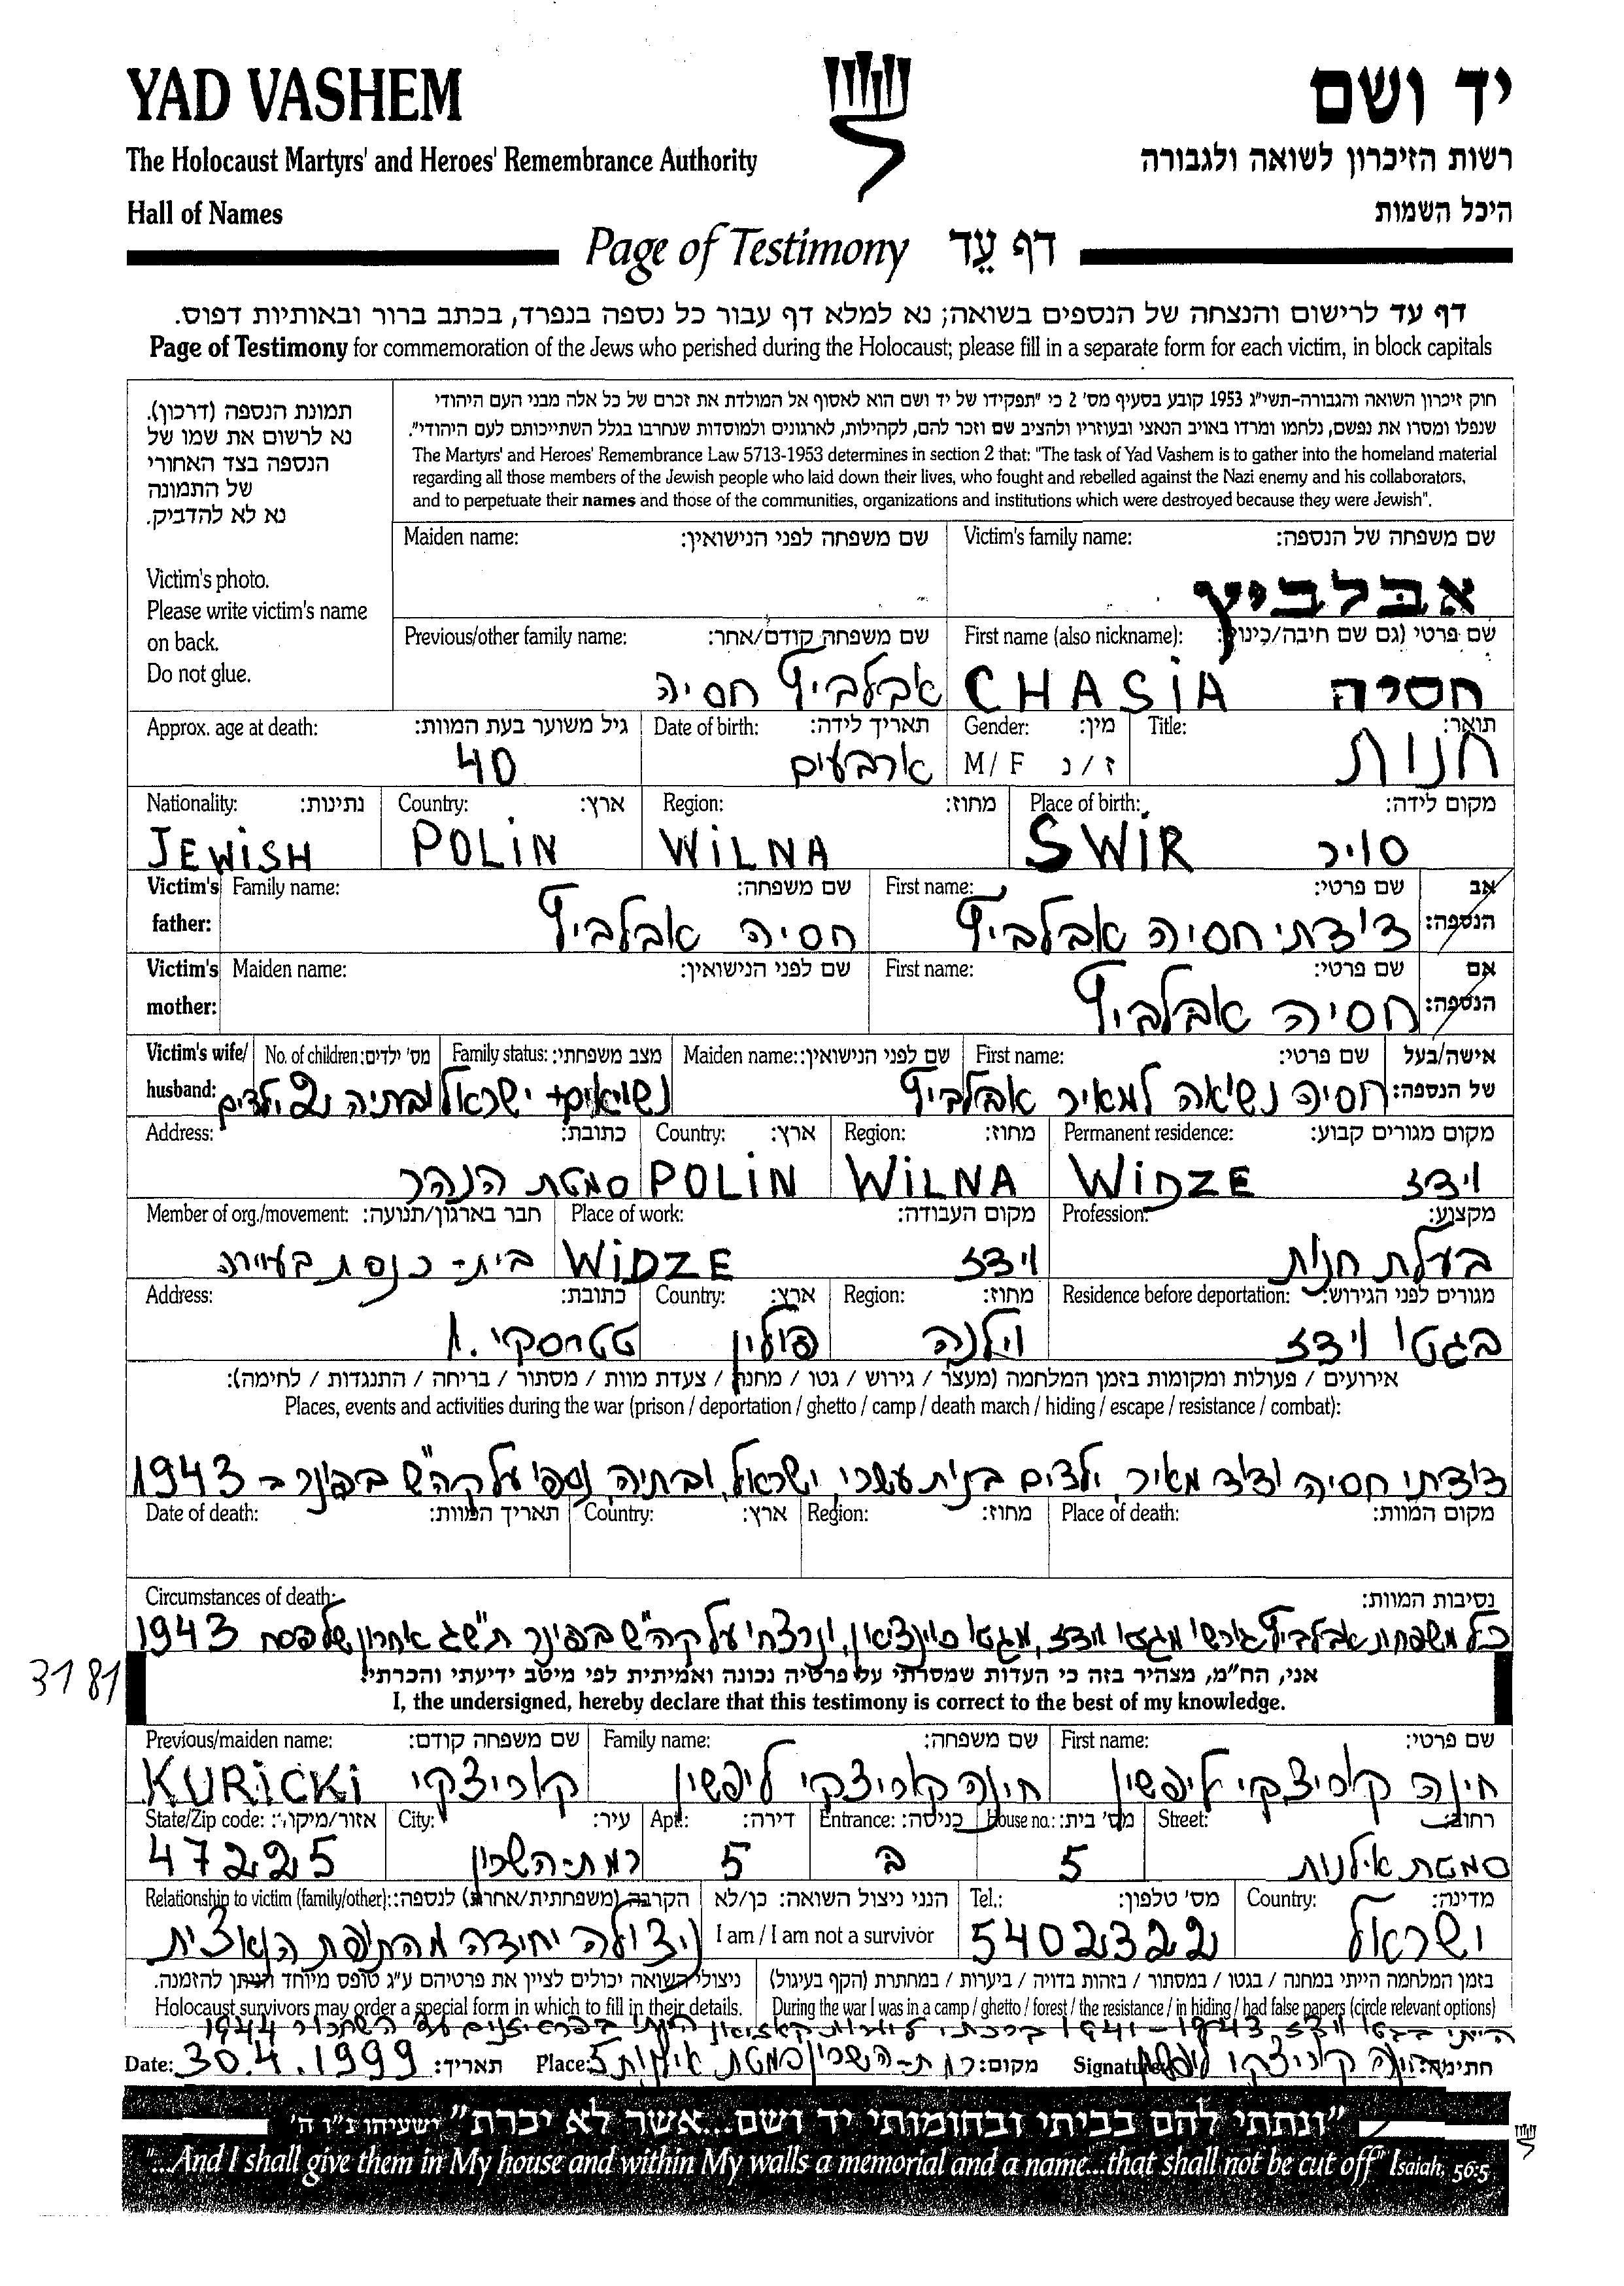 YAD VASHEM
יד ושם
The Holocaust Martyrs' and Heroes' Remembrance Authority
רשות הזיכרון לשואה ולגבורה
Hall of Names
היכל השמות
Page of Testimony דף עֵד
דף עד לרישום והנצחה של הנספים בשואה; נא למלא דף עבור כל נספה בנפרד, בכתב ברור ובאותיות דפוס.
Page of Testimony for commemoration of the Jews who perished during the Holocaust; please fill in a separate form for each victim, in block capitals
תמונת הנספה (דרכון).
נא לרשום את שמו של
הנספה בצד האחורי
של התמונה
נא לא להדביק.
Victim's photo.
Please write victim's name
on back.
Do not glue.
חוק זיכרון השואה והגבורה-תשי"ג 1953 קובע בסעיף מס' 2 כי "תפקידו של יד ושם הוא לאסוף אל המולדת את זכרם של כל אלה מבני העם היהודי
שנפלו ומסרו את נפשם, נלחמו ומרדו באויב הנאצי ובעוזריו ולהציב שם וזכר להם, לקהילות, לארגונים ולמוסדות שנחרבו בגלל השתייכותם לעם היהודי".
The Martyrs' and Heroes' Remembrance Law 5713-1953 determines in section 2 that: "The task of Yad Vashem is to gather into the homeland material
regarding all those members of the Jewish people who laid down their lives, who fought and rebelled against the Nazi enemy and his collaborators,
and to perpetuate their names and those of the communities, organizations and institutions which were destroyed because they were Jewish".
Victim's family name: שם משפחה של הנספה:
אבלביץ
Maiden name: שם משפחה לפני הנישואין:
First name (also nickname): שם פרטי (גם שם חיבה/כינוי):
CHASIA חסיה
Previous/other family name: שם משפחה קודם/אחר:
אבלביץ חסיה
Title: תואר:
חנות
Gender: מין:
M/F ז/נ
Date of birth: תאריך לידה:
ארבעים
Approx. age at death: גיל משוער בעת המוות:
40
Place of birth: מקום לידה:
SWIR סויר
Region: מחוז:
WILNA
Country: ארץ:
POLIN
Nationality: נתינות:
JEWISH
Victim's father: אב הנספה:
First name: שם פרטי:
דודתי חסיה אבלביץ
Family name: שם משפחה:
חסיה אבלביץ
Victim's mother: אם הנספה:
First name: שם פרטי:
חסיה אבלביץ
Maiden name: שם לפני הנישואין:
Victim's wife/husband: אישה/בעל של הנספה:
First name: שם פרטי:
Maiden name: שם לפני הנישואין:
חסיה נשיאה למאיר אבלביץ
Family status: מצב משפחתי:
No. of children: מס' ילדים:
נשואים+ ישראל ובתיה 2 ילדים
Permanent residence: מקום מגורים קבוע:
WIDZE וידז
Region: מחוז:
WILNA
Country: ארץ:
POLIN
Address: כתובת:
סמטת הנהר
Profession: מקצוע:
בעלת חנות
Place of work: מקום העבודה:
WIDZE וידז
Member of org./movement: חבר בארגון/תנועה:
בית-כנסת בעיירה
Residence before deportation: מגורים לפני הגירוש:
בגטו וידז
Region: מחוז:
וילנה
Country: ארץ:
פולין
Address: כתובת:
אירועים / פעולות ומקומות בזמן המלחמה (מעצר / גירוש / גטו / מחנה / צעדת מוות / מסתור / בריחה / התנגדות / לחימה):
Places, events and activities during the war (prison / deportation / ghetto / camp / death march / hiding / escape / resistance / combat):
דודתי חסיה ודוד מאיר, ילדים בנות עשרי, ישראל, ובתיה, נספו על קה"ש בפונר ב- 1943
Place of death: מקום המוות:
Region: מחוז:
Country: ארץ:
Date of death: תאריך המוות:
Circumstances of death: נסיבות המוות:
כל משפחת אבלביץ גורשו מגטו וידז, מגטו סוינציאן, ונרצחו על קה"ש בפונר תש"ג אחרון של פסח 1943
3181
אני, הח"מ, מצהיר בזה כי העדות שמסרתי על פרטיה נכונה ואמיתית לפי מיטב ידיעתי והכרתי.
I, the undersigned, hereby declare that this testimony is correct to the best of my knowledge.
First name: שם פרטי:
חינה קוריצקי ליפשין
Family name: שם משפחה:
חינה קוריצקי ליפשין
Previous/maiden name: שם משפחה קודם:
KURICKI קוריצקי
Street: רחוב:
סמטת אילנות
House no.: מס' בית:
5
Entrance: כניסה:
ב
Apt.: דירה:
5
City: עיר:
רמת-השרון
State/Zip code: אזור/מיקוד:
47225
Country: מדינה:
ישראל
Tel.: מס' טלפון:
5402322
הנני ניצול השואה: כן/לא
I am / I am not a survivor
Relationship to victim (family/other): הקרבה (משפחתית/אחרת) לנספה:
ניצולה יחידה מהתופת הנאצית
בזמן המלחמה הייתי במחנה / בגטו / במסתור / בזהות בדויה / ביערות / במחתרת (הקף בעיגול)
During the war I was in a camp / ghetto / forest / the resistance / in hiding / had false papers (circle relevant options)
ניצולי השואה יכולים לציין את פרטיהם ע"ג טופס מיוחד הניתן להזמנה.
Holocaust survivors may order a special form in which to fill in their details.
הייתי בגטו וידז 1941-1943 ברחתי ליערות קאזיאן הייתי בפרטיזנים עד השחרור 1944
Date: 30.4.1999 תאריך:
Place: רמת-השרון סמטת אילנות 5 מקום:
Signature: חינה קוריצקי ליפשין חתימה:
"ונתתי להם בביתי ובחומותי יד ושם...אשר לא יכרת" ישעיהו נ"ו ה'
"...And I shall give them in My house and within My walls a memorial and a name...that shall not be cut off" Isaiah, 56:5